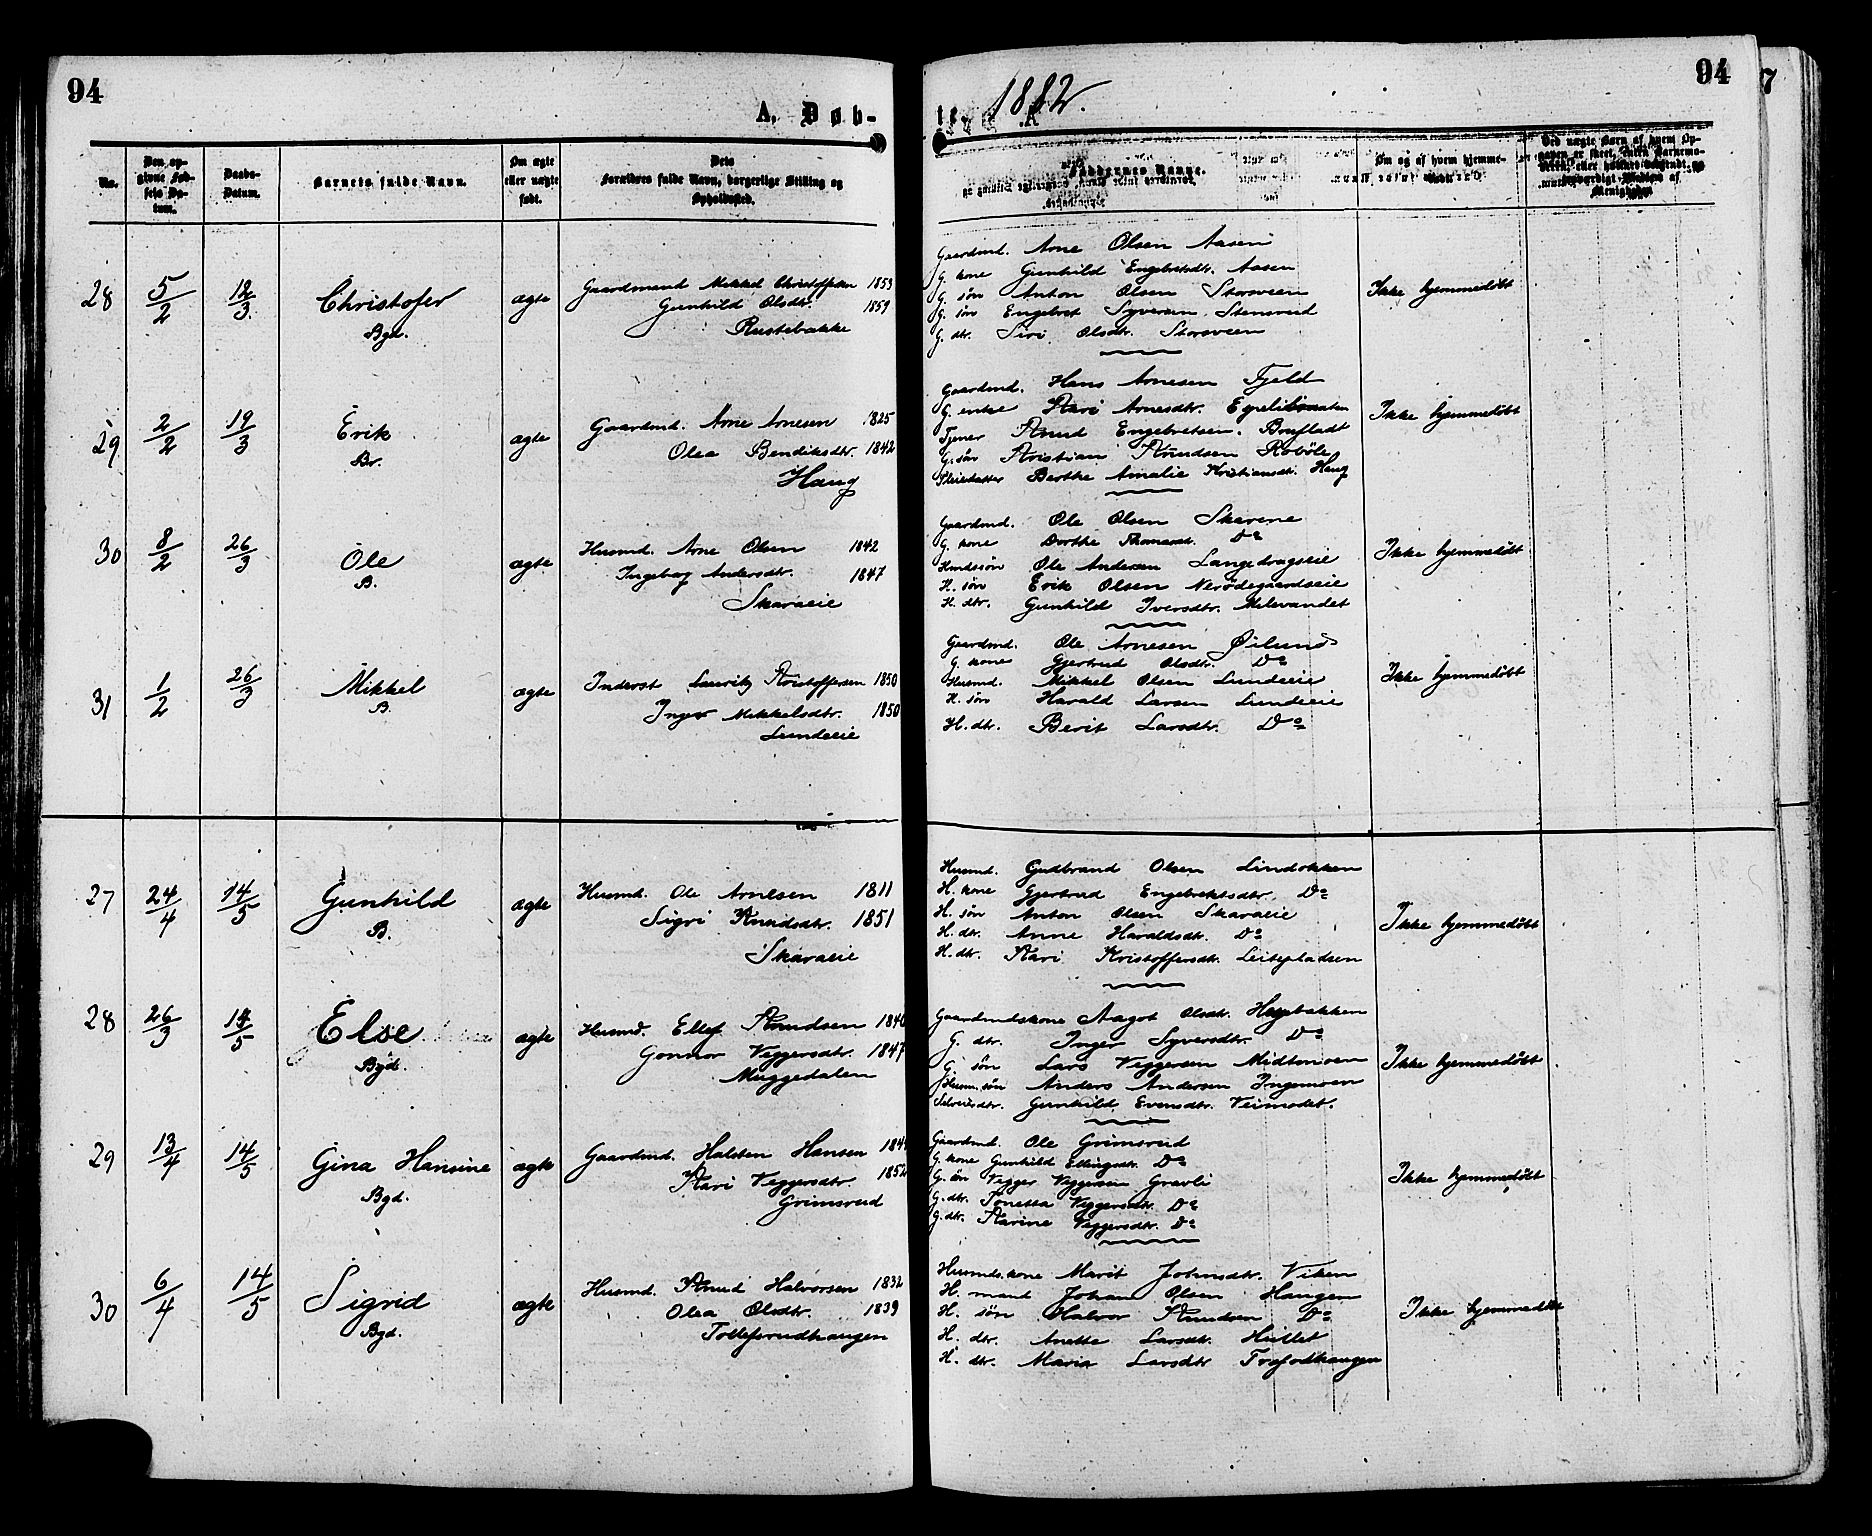 94
94
1882.
A. Døb-
te.
No.
Den op-
givne Fød-
sels Da-
tum.
Daabs-
Datum.
Barnets fulde Navn.
Om ægte
eller uægte
født.
Dets
Forældres fulde Navn, borgerlige Stilling og
Opholdssted.
Faddernes Navne.
Om og af hvem hjemme-
døbt.
28 5/2 12/3 Christofer ægte
Bgd.
Gaardmand Mikkel Christoffersen 1853
Gunhild Olsdtr. 1859
Rustebakke
Gaardmd. Arne Olsen Aasen
G. kone Gunhild Engebretsdtr. Aasen
G. søn Anton Olsen Storsveen
G. søn Engebret Syversen Stensrud
G. dtr. Siri Olsdtr. Storsveen
Ikke hjemmedøbt
29 2/2 19/3 Erik ægte
Br.
Gaardmd. Arne Arnesen 1825
Olea Bendiksdtr. 1842
Haug
Gaardmd. Hans Arnesen Fjeld
G. enke Kari Arnesdtr.
Tjener Knud Engebretsen Bufladt
G. søn Kristian Knudsen Robøle
Pleiedatter Berthe Amalie Kristiansdtr. Haug
Ikke hjemmedøbt
30 8/2 26/3 Ole ægte
B.
Husmd. Arne Olsen 1842
Ingeborg Andersdtr. 1847
Skaraeie
Gaardmd. Ole Olsen Skarene
G. kone Dorthe Thomasd. Do
Husmdssøn Ole Andersen Langedrageie
H. søn Erik Olsen Nerødegaardseie
H. dtr. Gunhild Iversdtr. Melevandet
Ikke hjemmedøbt
31 1/2 26/3 Mikkel ægte
B.
Inderst Lauritz Kristoffersen 1850
Inger Mikkelsdtr. 1850
Lundeeie
Gaardmd. Ole Arnesen Øilund
G. kone Gjertrud Olsdtr. Do
Husmd. Mikkel Olsen Lundeeie
H. søn Harald Larsen Lundeeie
H. dtr. Berit Larsdtr. Do
Ikke hjemmedøbt
27 24/4 14/5 Gunhild ægte
B.
Husmd. Ole Arnesen 1811
Sigri Knudsdtr. 1851
Skaraeie
Husmd. Gudbrand Olsen Lindøkken
H. kone Gjertrud Engebrektsdtr. Do
H. søn Anton Olsen Skaraeie
H. dtr. Anne Haraldsdtr. Do
H. dtr. Kari Kristoffersdtr. Leitepladsen
Ikke hjemmedøbt
28 26/3 14/5 Else ægte
Bgd.
Husmd. Ellef Knudsen 1840
Gonnor Viggersdtr. 1847
Muggedalen
Gaardmdskone Aagot Olsdt. Haybakken
G. dtr. Inger Syversdtr. Do
G. søn Lars Viggersen Midtmoen
Husm. søn Anders Andersen Ingemoen
Selveiersdtr. Gunhild Evensdtr. Veimodet.
Ikke hjemmedøbt
29 13/4 14/5 Gina Hansine ægte
Bgd.
Gaardmd. Halsten Hansen 184
Kari Viggersdtr. 1852
Grimsrud
Gaardmd. Ole Grimsrud
G. kone Gunhild Ellingsdtr. Do
G. søn Vigger Viggersen Gravli
G. dtr. Tonetta Viggersdtr. Do
G. dtr. Karine Viggersdtr. Do
Ikke hjemmedøbt
30 6/4 14/5 Sigrid ægte
Bgd.
Husmd. Knud Halvorsen 1832
Olea Olsdtr. 1839
Tollefsrudhaugen
Husmds.kone Marit Johnsdtr. Viken
H. mand Johan Olsen Haugen
H. søn Halvor Knudsen Do
H. dtr. Anette Larsdtr. Hullet
H. dtr. Maria Larsdtr
Ikke hjemmedøbt